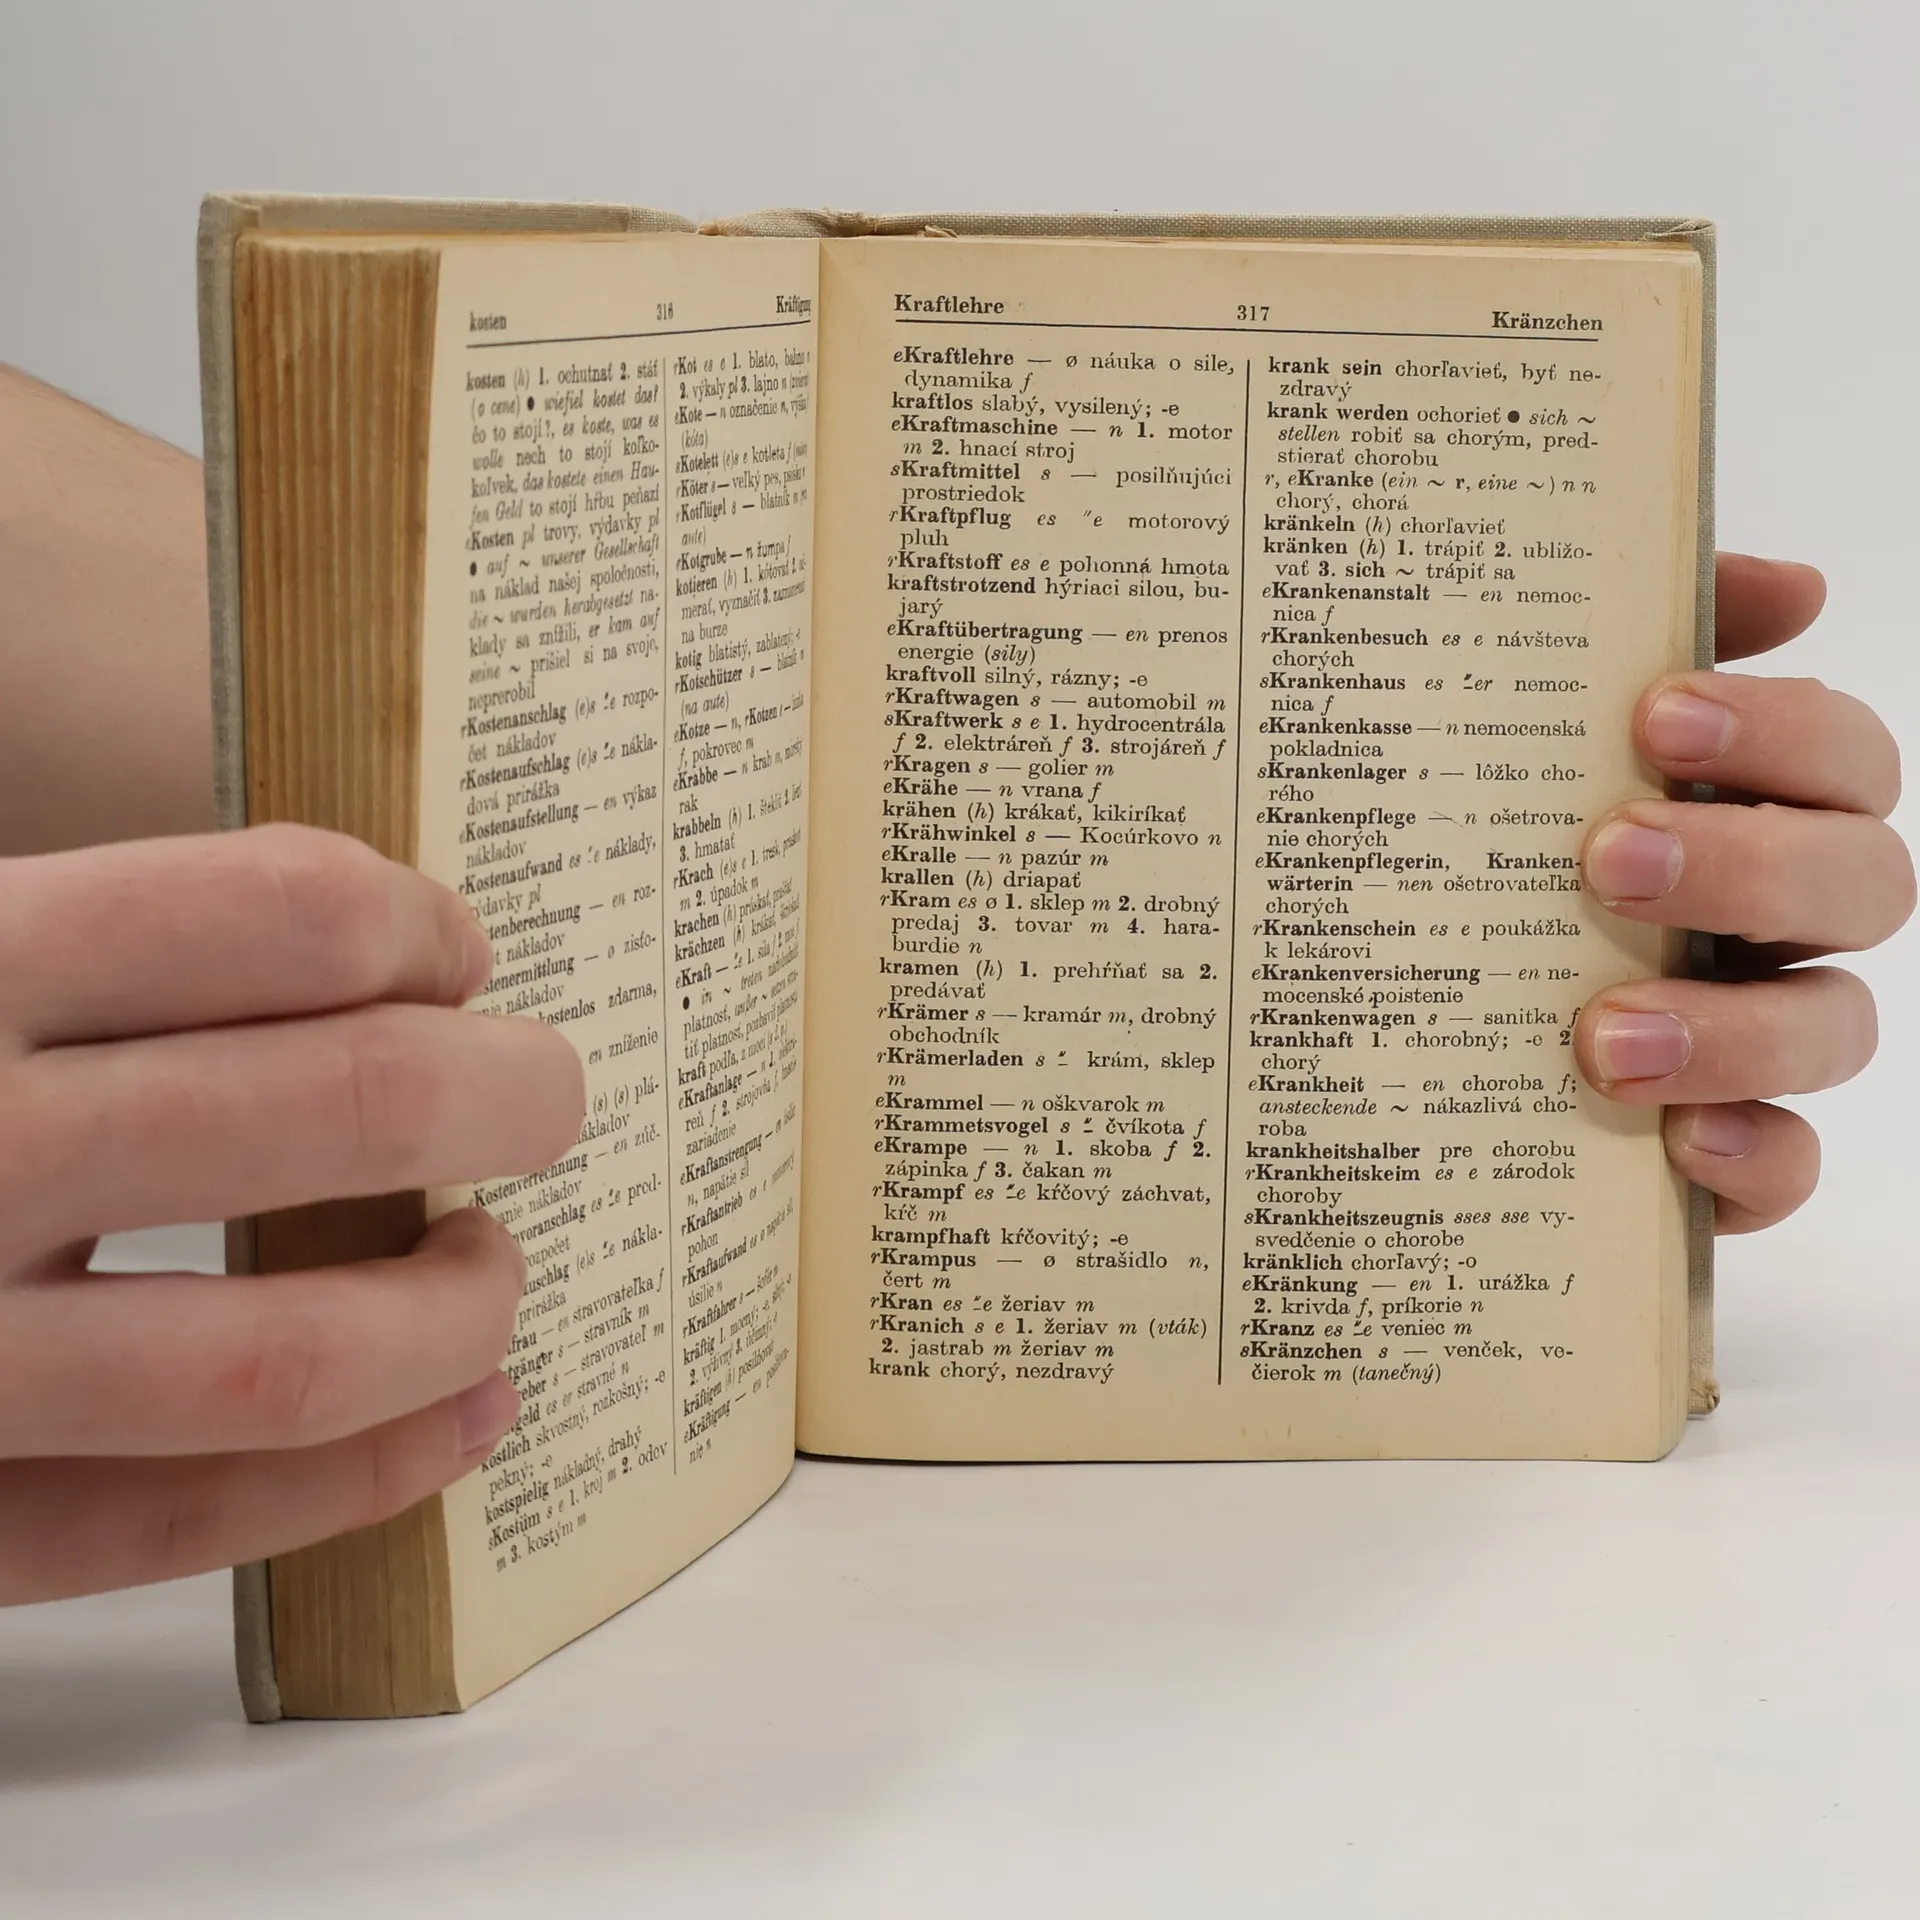 kosten 316 Kräftigung
kosten (h) 1. ochutnať 2. stáť
(o cene) ● wiefiel kostet das?
čo to stojí?, es koste, was es
wolle nech to stojí koľko-
koľvek, das kostete einen Hau-
fen Geld to stojí hŕbu peňazí
eKosten pl trovy, výdavky pl
● auf ~ unserer Gesellschaft
na náklad našej spoločnosti,
die ~ wurden herabgesetzt ná-
klady sa znížili, er kam auf
seine ~ prišiel si na svoje,
neprerobil
rKostenanschlag (e)s ⸚e rozpo-
čet nákladov
rKostenaufschlag (e)s ⸚e nákla-
dová prirážka
eKostenaufstellung — en výkaz
nákladov
rKostenaufwand es ⸚e náklady,
výdavky pl
tenberechnung — en roz-
t nákladov
stenermittlung — o zisťo-
nie nákladov
kostenlos zdarma,
en zníženie
(s) (s) plá-
ákladov
eKostenverrechnung — en zúč-
vanie nákladov
nvoranschlag es ⸚e pred-
rozpočet
zuschlag (e)s ⸚e nákla-
prirážka
frau — en stravovateľka f
tgänger s — stravník m
geber s — stravovateľ m
tgeld es er stravné n
köstlich skvostný, rozkošný; -e
pekný; -e
kostspielig nákladný, drahý
sKostüm s e 1. kroj m 2. odev
m 3. kostým m
rKot es e 1. blato, bahno n
2. výkaly pl 3. lajno n
eKote — n označenie n, výška
(kóta)
sKotelett (e)s e kotleta f
rKöter s — veľký pes, psisko n
rKotflügel s — blatník m
aute)
eKotgrube — n žumpa f
kotieren (h) 1. kótovať 2.
merať, vyznačiť 3.
na burze
kotig blatistý, zablatený; -e
rKotschützer s — blatník m
(na aute)
eKotze — n, rKotzen s —
f, pokrovec m
eKrabbe — n krab m, morský
rak
krabbeln (h) 1. štekliť 2. liezť
3. hmatať
rKrach (e)s e 1. tresk,
m 2. úpadok m
krachen (h) prásкať,
krächzen (h) krákať,
eKraft — ⸚e 1. sila f 2. moc f
● in ~ treten
platnosť, außer ~ setzen
tiť platnosť, pozbaviť platnosti
kraft podľa, z moci
eKraftanlage — n 1.
reň f 2. strojovňa f,
zariadenie
eKraftanstrengung — en úsilie
n, napätie síl
rKraftantrieb es e motorový
pohon
rKraftaufwand es
úsilie n
rKraftfahrer s — šofér m
kräftig 1. mocný; -e,
2. výživný 3. účinný; -e
kräftigen (h) posilňovať
eKräftigung — en
nie n
Kraftlehre 317 Kränzchen
eKraftlehre — ø náuka o sile,
dynamika f
kraftlos slabý, vysilený; -e
eKraftmaschine — n 1. motor
m 2. hnací stroj
sKraftmittel s — posilňujúci
prostriedok
rKraftpflug es ⸚e motorový
pluh
rKraftstoff es e pohonná hmota
kraftstrotzend hýriaci silou, bu-
jarý
eKraftübertragung — en prenos
energie (sily)
kraftvoll silný, rázny; -e
rKraftwagen s — automobil m
sKraftwerk s e 1. hydrocentrála
f 2. elektráreň f 3. strojáreň f
rKragen s — golier m
eKrähe — n vrana f
krähen (h) krákať, kikiríkať
rKrähwinkel s — Kocúrkovo n
eKralle — n pazúr m
krallen (h) driapať
rKram es ø 1. sklep m 2. drobný
predaj 3. tovar m 4. hara-
burdie n
kramen (h) 1. prehŕňať sa 2.
predávať
rKrämer s — kramár m, drobný
obchodník
rKrämerladen s ⸚ krám, sklep
m
eKrammel — n oškvarok m
rKrammetsvogel s ⸚ čvíkota f
eKrampe — n 1. skoba f 2.
zápinka f 3. čakan m
rKrampf es ⸚e kŕčový záchvat,
kŕč m
krampfhaft kŕčovitý; -e
rKrampus — ø strašidlo n,
čert m
rKran es ⸚e žeriav m
rKranich s e 1. žeriav m (vták)
2. jastrab m žeriav m
krank chorý, nezdravý
krank sein chorľavieť, byť ne-
zdravý
krank werden ochorieť ● sich ~
stellen robiť sa chorým, pred-
stierať chorobu
r, eKranke (ein ~ r, eine ~) n n
chorý, chorá
kränkeln (h) chorľavieť
kränken (h) 1. trápiť 2. ubližo-
vať 3. sich ~ trápiť sa
eKrankenanstalt — en nemoc-
nica f
rKrankenbesuch es e návšteva
chorých
sKrankenhaus es ⸚er nemoc-
nica f
eKrankenkasse — n nemocenská
pokladnica
sKrankenlager s — lôžko cho-
rého
eKrankenpflege — n ošetrova-
nie chorých
eKrankenpflegerin, Kranken-
wärterin — nen ošetrovateľka
chorých
rKrankenschein es e poukážka
k lekárovi
eKrankenversicherung — en ne-
mocenské poistenie
rKrankenwagen s — sanitka f
krankhaft 1. chorobný; -e 2.
chorý
eKrankheit — en choroba f;
ansteckende ~ nákazlivá cho-
roba
krankheitshalber pre chorobu
rKrankheitskeim es e zárodok
choroby
sKrankheitszeugnis sses sse vy-
svedčenie o chorobe
kränklich chorľavý; -o
eKränkung — en 1. urážka f
2. krivda f, príkorie n
rKranz es ⸚e veniec m
sKränzchen s — venček, ve-
čierok m (tanečný)